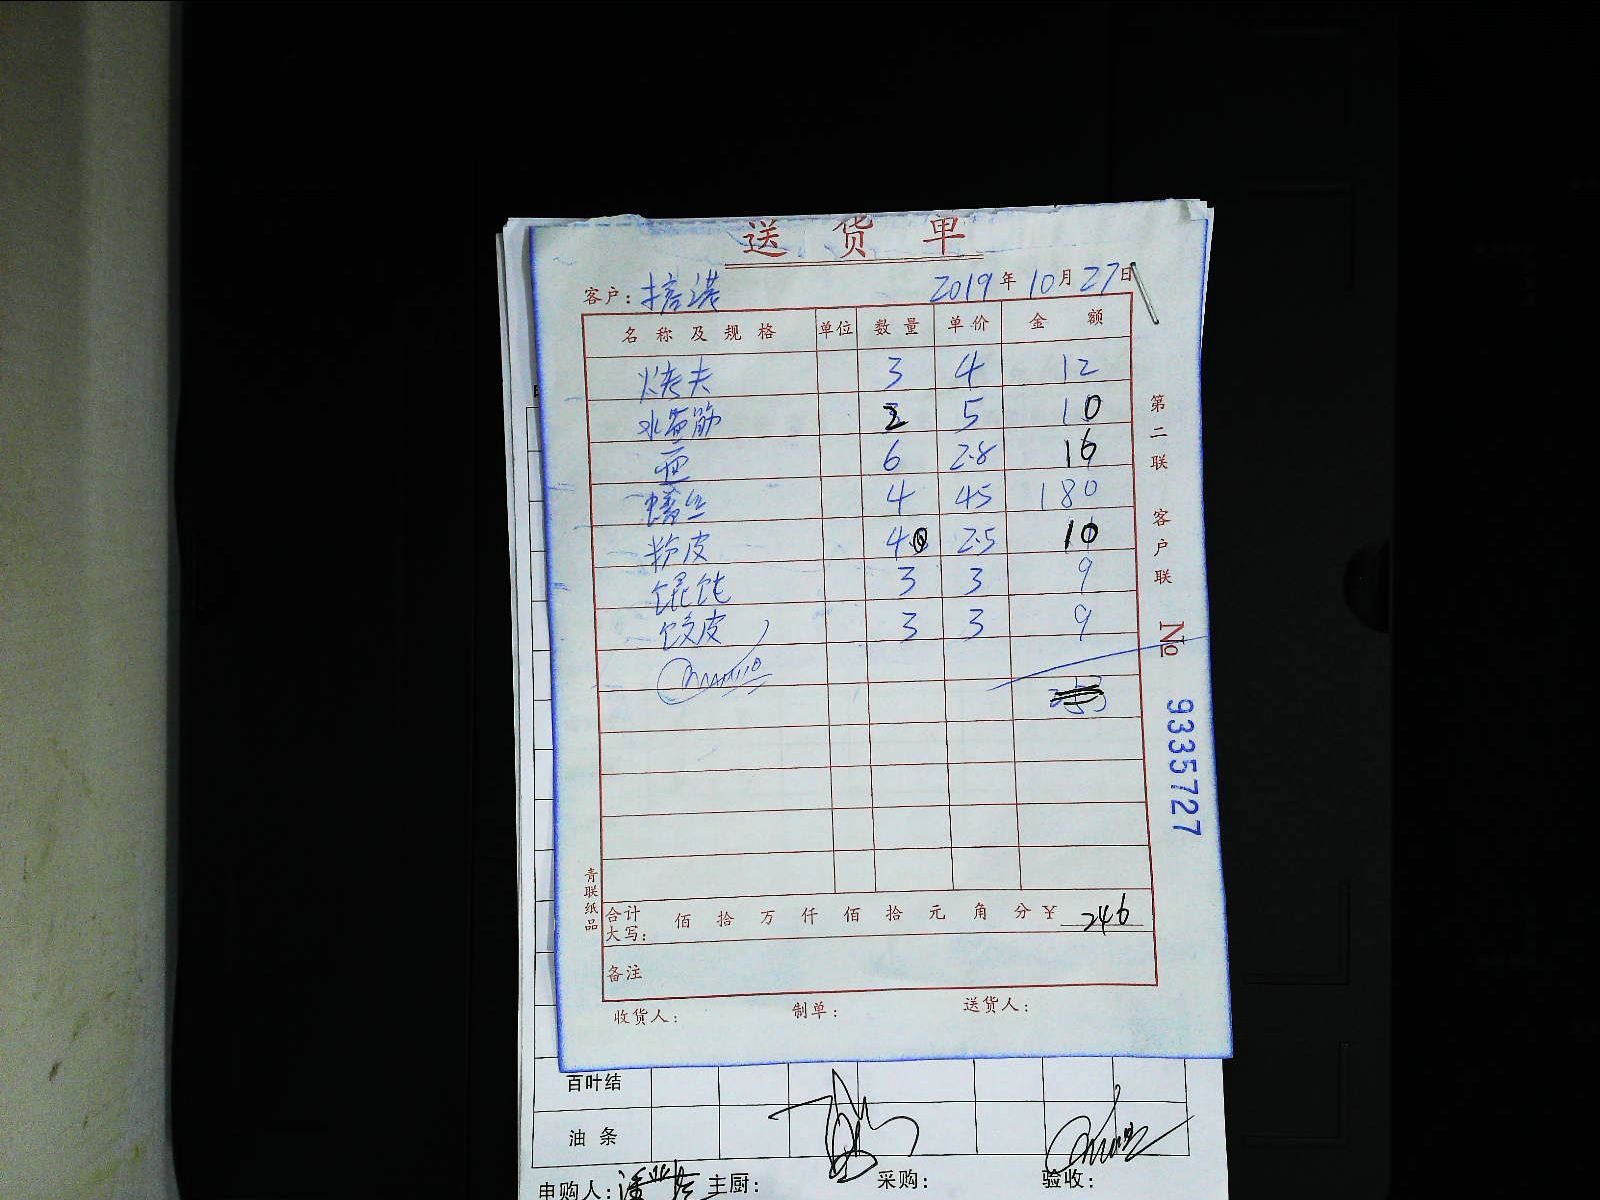 送货单
客户： 2019年10月27日
名称及规格 单位 数量 单价 金额
烤夫 3 4 12
水面筋 2 5 10
面 6 2.8 16
丝 4 45 180
粉皮 4 2.5 10
馄饨 3 3 9
饺皮 3 3 9
第二联 客户联
No 9335727
青联纸品
合计大写： 佰拾万仟佰拾元角分 ¥ 246
备注
收货人： 制单： 送货人：
百叶结
油条
申购人： 主厨： 采购： 验收：